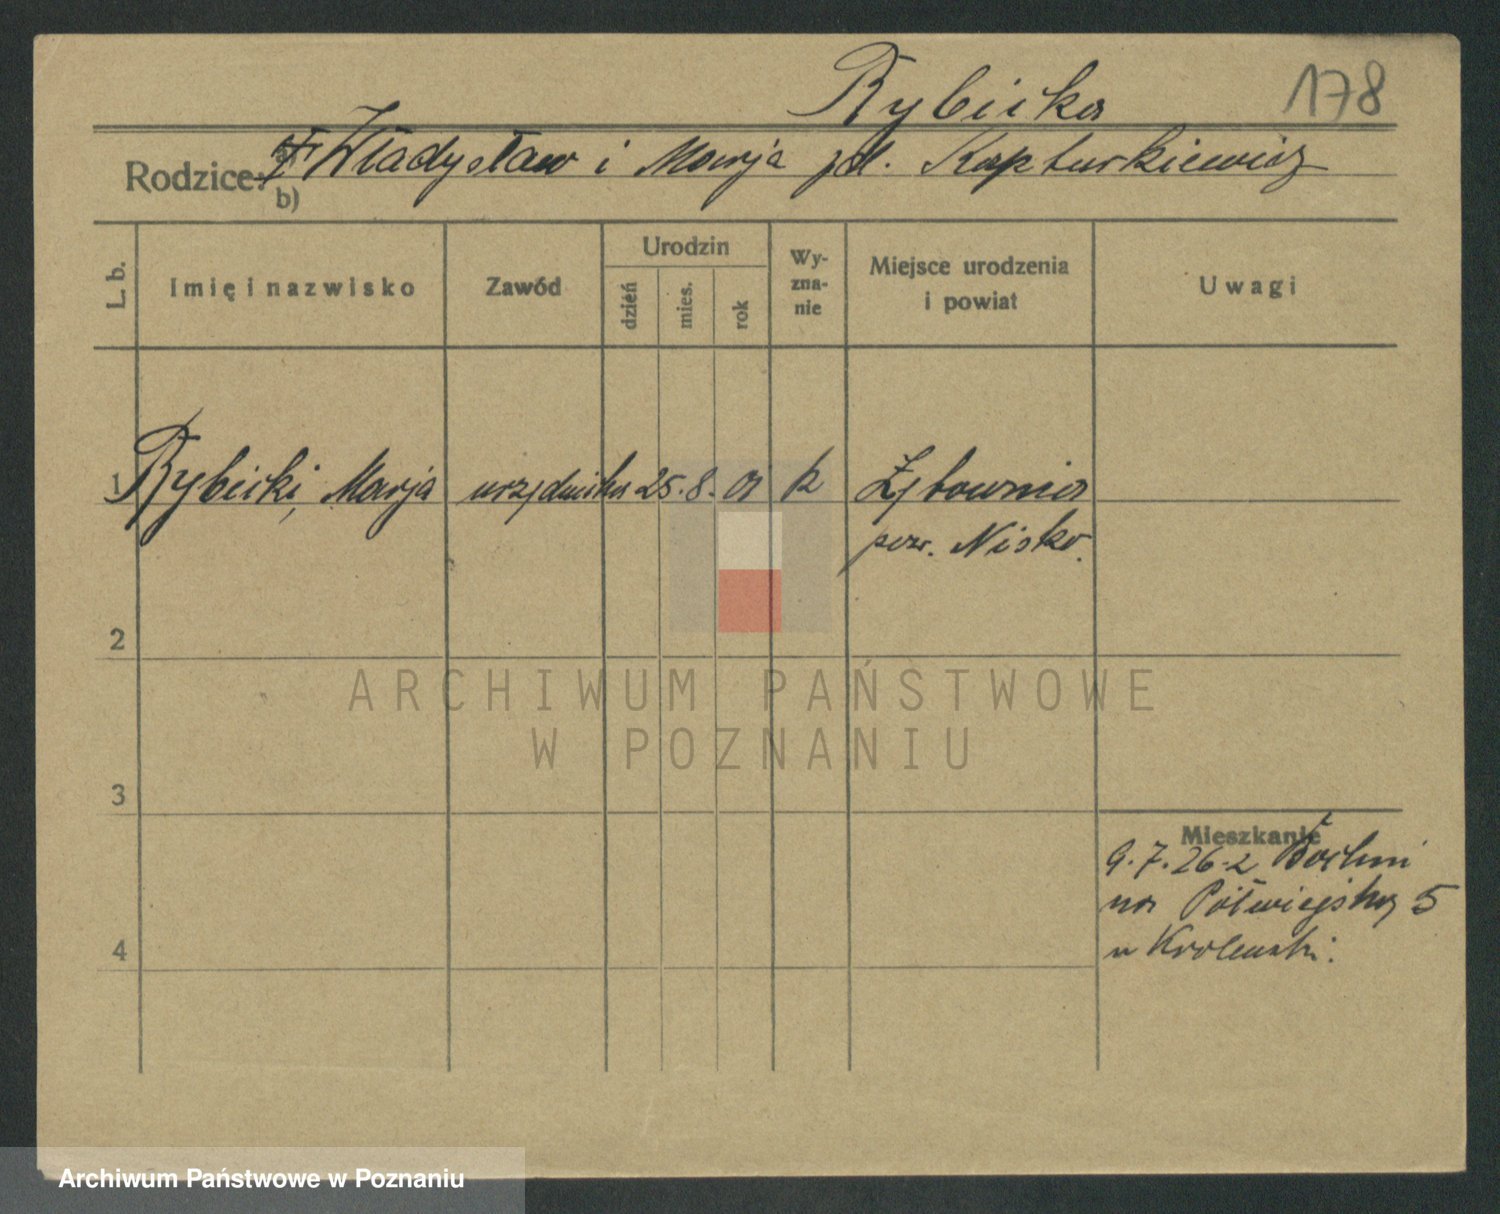 Rybicka 178
Rodzice: a) Władysław i Marja zd. Kapturkiewicz
b)
L. b.
Imię i nazwisko
Zawód
Urodzin
dzień
mies.
rok
Wy-
zna-
nie
Miejsce urodzenia
i powiat
Uwagi
1 Rybicki, Marja urzędniczka 25. 8. 01 k Żybownia
pow. Nisko.
2
3
4
ARCHIWUM PAŃSTWOWE
W POZNANIU
Mieszkanie
9.7.26 z
na Półwiejską 5
u Krolewski.
Archiwum Państwowe w Poznaniu